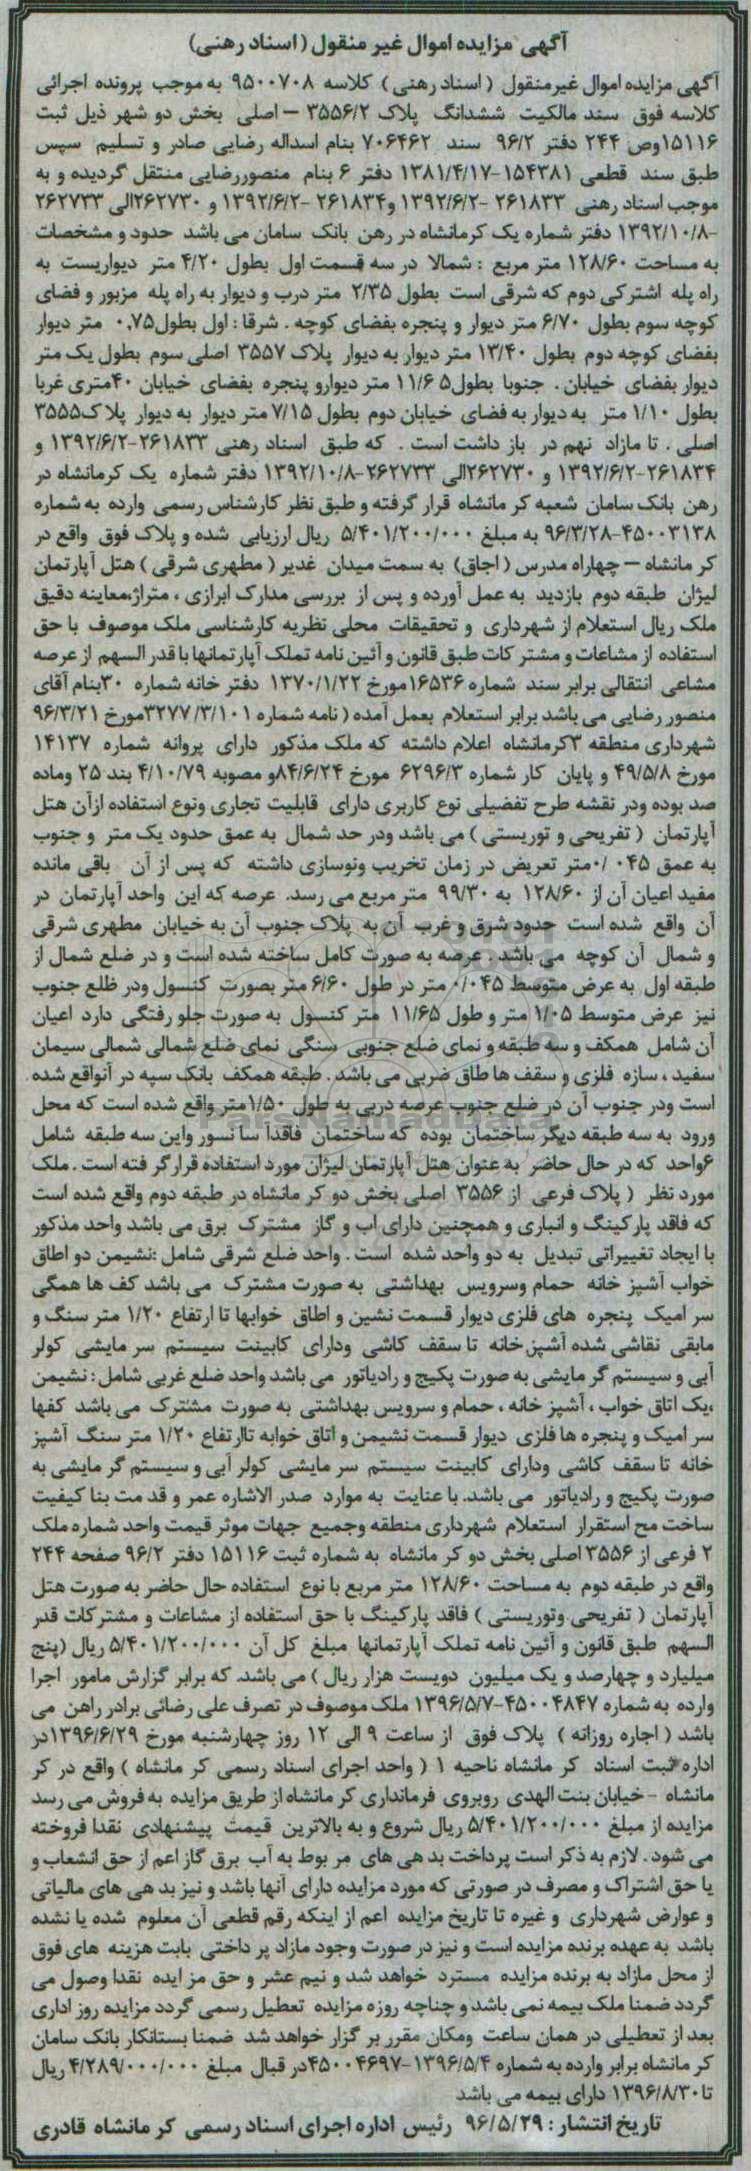 آگهی مزایده اموال غیر منقول (اسناد رهنی)
آگهی مزایده اموال غیرمنقول (اسناد رهنی) کلاسه ۹۵۰۰۷۰۸ به موجب پرونده اجرائی
کلاسه فوق سند مالکیت ششدانگ پلاک ۳۵۵۶/۲ – اصلی بخش دو شهر ذیل ثبت
۱۵۱۱۶وص ۲۴۴ دفتر ۹۶/۲ سند ۷۰۶۴۶۲ بنام اسداله رضایی صادر و تسلیم سپس
طبق سند قطعی ۱۵۴۳۸۱-۱۳۸۱/۴/۱۷ دفتر ۶ بنام منصوررضایی منتقل گردیده و به
موجب اسناد رهنی ۲۶۱۸۳۳ -۱۳۹۲/۶/۲ و۲۶۱۸۳۴ -۱۳۹۲/۶/۲ و ۲۶۲۷۳۰الی ۲۶۲۷۳۳
-۱۳۹۲/۱۰/۸ دفتر شماره یک کرمانشاه در رهن بانک سامان می باشد حدود و مشخصات
به مساحت ۱۲۸/۶۰ متر مربع : شمالا در سه قسمت اول بطول ۴/۲۰ متر دیواریست به
راه پله اشترکی دوم که شرقی است بطول ۲/۳۵ متر درب و دیوار به راه پله مزبور و فضای
کوچه سوم بطول ۶/۷۰ متر دیوار و پنجره بفضای کوچه . شرقا : اول بطول۰,۷۵ متر دیوار
بفضای کوچه دوم بطول ۱۳/۴۰ متر دیوار به دیوار پلاک ۳۵۵۷ اصلی سوم بطول یک متر
دیوار بفضای خیابان . جنوبا بطول۱۱/۶۵ متر دیوارو پنجره بفضای خیابان ۴۰متری غربا
بطول ۱/۱۰ متر به دیوار به فضای خیابان دوم بطول ۷/۱۵ متر دیوار به دیوار پلا ک۳۵۵۵
اصلی . تا مازاد نهم در باز داشت است . که طبق اسناد رهنی ۲۶۱۸۳۳-۱۳۹۲/۶/۲ و
۲۶۱۸۳۴-۱۳۹۲/۶/۲ و ۲۶۲۷۳۰الی ۲۶۲۷۳۳-۱۳۹۲/۱۰/۸ دفتر شماره یک کرمانشاه در
رهن بانک سامان شعبه کر مانشاه قرار گرفته و طبق نظر کارشناس رسمی وارده به شماره
۴۵۰۰۳۱۳۸-۹۶/۳/۲۸ به مبلغ ۵/۴۰۱/۲۰۰/۰۰۰ ریال ارزیابی شده و پلاک فوق واقع در
کر مانشاه – چهاراه مدرس (اجاق) به سمت میدان غدیر ( مطهری شرقی ) هتل آپارتمان
لیژان طبقه دوم بازدید به عمل آورده و پس از بررسی مدارک ابرازی ، متراژ،معاینه دقیق
ملک ریال استعلام از شهرداری و تحقیقات محلی نظریه کارشناسی ملک موصوف با حق
استفاده از مشاعات و مشتر کات طبق قانون و آئین نامه تملک آپارتمانها با قدر السهم از عرصه
مشاعی انتقالی برابر سند شماره ۱۶۵۳۶مورخ ۱۳۷۰/۱/۲۲ دفتر خانه شماره ۳۰بنام آقای
منصور رضایی می باشد برابر استعلام بعمل آمده ( نامه شماره ۳۲۷۷/۳/۱۰۱مورخ ۹۶/۳/۲۱
شهرداری منطقه ۳کرمانشاه اعلام داشته که ملک مذکور دارای پروانه شماره ۱۴۱۳۷
مورخ ۴۹/۵/۸ و پایان کار شماره ۶۲۹۶/۳ مورخ ۸۴/۶/۲۴و مصوبه ۴/۱۰/۷۹ بند ۲۵ وماده
صد بوده ودر نقشه طرح تفضیلی نوع کاربری دارای قابلیت تجاری ونوع استفاده ازآن هتل
آپارتمان ( تفریحی و توریستی ) می باشد ودر حد شمال به عمق حدود یک متر و جنوب
به عمق ۰۴۵ /۰متر تعریض در زمان تخریب ونوسازی داشته که پس از آن باقی مانده
مفید اعیان آن از ۱۲۸/۶۰ به ۹۹/۳۰ متر مربع می رسد. عرصه که این واحد آپارتمان در
آن واقع شده است حدود شرق و غرب آن به پلاک جنوب آن به خیابان مطهری شرقی
و شمال آن کوچه می باشد . عرصه به صورت کامل ساخته شده است و در ضلع شمال از
طبقه اول به عرض متوسط ۰/۰۴۵ متر در طول ۶/۶۰ متر بصورت کنسول ودر ظلع جنوب
نیز عرض متوسط ۱/۰۵ متر و طول ۱۱/۶۵ متر کنسول به صورت جلو رفتگی دارد اعیان
آن شامل همکف و سه طبقه و نمای ضلع جنوبی سنگی نمای ضلع شمالی شمالی سیمان
سفید ، سازه فلزی و سقف ها طاق ضربی می باشد . طبقه همکف بانک سپه در آنواقع شده
است ودر جنوب آن در ضلع جنوب عرصه دربی به طول ۱/۵۰متر واقع شده است که محل
ورود به سه طبقه دیگر ساختمان بوده که ساختمان فاقدا سا نسور واین سه طبقه شامل
۶واحد که در حال حاضر به عنوان هتل آپارتمان لیژان مورد استفاده قرار گر فته است . ملک
مورد نظر ( پلاک فرعی از ۳۵۵۶ اصلی بخش دو کر مانشاه در طبقه دوم واقع شده است
که فاقد پارکینگ و انباری و همچنین دارای اب و گاز مشترک برق می باشد واحد مذکور
با ایجاد تغییراتی تبدیل به دو واحد شده است . واحد ضلع شرقی شامل :نشیمن دو اطاق
خواب آشپز خانه حمام وسرویس بهداشتی به صورت مشترک می باشد کف ها همگی
سر امیک پنجره های فلزی دیوار قسمت نشین و اطاق خوابها تا ارتفاع ۱/۲۰ متر سنگ و
مابقی نقاشی شده آشپز خانه تا سقف کاشی ودارای کابینت سیستم سر مایشی کولر
آبی و سیستم گر مایشی به صورت پکیج و رادیاتور می باشد واحد ضلع غربی شامل : نشیمن
،یک اتاق خواب ، آشپز خانه ، حمام و سرویس بهداشتی به صورت مشترک می باشد کفها
سر امیک و پنجره ها فلزی دیوار قسمت نشیمن و اتاق خوابه تاارتفاع ۱/۲۰ متر سنگ آشپز
خانه تا سقف کاشی ودارای کابینت سیستم سر مایشی کولر آبی و سیستم گر مایشی به
صورت پکیج و رادیاتور می باشد. با عنایت به موارد صدر الاشاره عمر و قد مت بنا کیفیت
ساخت مح استقرار استعلام شهرداری منطقه وجمیع جهات موثر قیمت واحد شماره ملک
۲ فرعی از ۳۵۵۶ اصلی بخش دو کر مانشاه به شماره ثبت ۱۵۱۱۶ دفتر ۹۶/۲ صفحه ۲۴۴
واقع در طبقه دوم به مساحت ۱۲۸/۶۰ متر مربع با نوع استفاده حال حاضر به صورت هتل
آپارتمان ( تفریحی وتوریستی ) فاقد پارکینگ با حق استفاده از مشاعات و مشترکات قدر
السهم طبق قانون و آئین نامه تملک آپارتمانها مبلغ کل آن ۵/۴۰۱/۲۰۰/۰۰۰ ریال (پنج
میلیارد و چهارصد و یک میلیون دویست هزار ریال ) می باشد. که برابر گزارش مامور اجرا
وارده به شماره ۴۵۰۰۴۸۴۷-۱۳۹۶/۵/۷ ملک موصوف در تصرف علی رضائی برادر راهن می
باشد ( اجاره روزانه ) پلاک فوق از ساعت ۹ الی ۱۲ روز چهارشنبه مورخ ۱۳۹۶/۶/۲۹در
اداره ثبت اسناد کر مانشاه ناحیه ۱ ( واحد اجرای اسناد رسمی کر مانشاه ) واقع در کر
مانشاه - خیابان بنت الهدی روبروی فرمانداری کر مانشاه از طریق مزایده به فروش می رسد
مزایده از مبلغ ۵/۴۰۱/۲۰۰/۰۰۰ ریال شروع و به بالاترین قیمت پیشنهادی نقدا فروخته
می شود . لازم به ذکر است پرداخت بد هی های مر بوط به آب برق گاز اعم از حق انشعاب و
یا حق اشتراک و مصرف در صورتی که مورد مزایده دارای آنها باشد و نیز بد هی های مالیاتی
و عوارض شهرداری و غیره تا تاریخ مزایده اعم از اینکه رقم قطعی آن معلوم شده یا نشده
باشد به عهده برنده مزایده است و نیز در صورت وجود مازاد پر داختی بابت هزینه های فوق
از محل مازاد به برنده مزایده مسترد خواهد شد و نیم عشر و حق مز ایده نقدا وصول می
گردد ضمنا ملک بیمه نمی باشد و چناچه روزه مزایده تعطیل رسمی گردد مزایده روز اداری
بعد از تعطیلی در همان ساعت ومکان مقرر بر گزار خواهد شد ضمنا بستانکار بانک سامان
کر مانشاه برابر وارده به شماره ۴۵۰۰۴۶۹۷-۱۳۹۶/۵/۴در قبال مبلغ ۴/۲۸۹/۰۰۰/۰۰۰ ریال
تا ۱۳۹۶/۸/۳۰ دارای بیمه می باشد
تاریخ انتشار : ۹۶/۵/۲۹ رئیس اداره اجرای اسناد رسمی کر مانشاه قادری
ParsNamadData